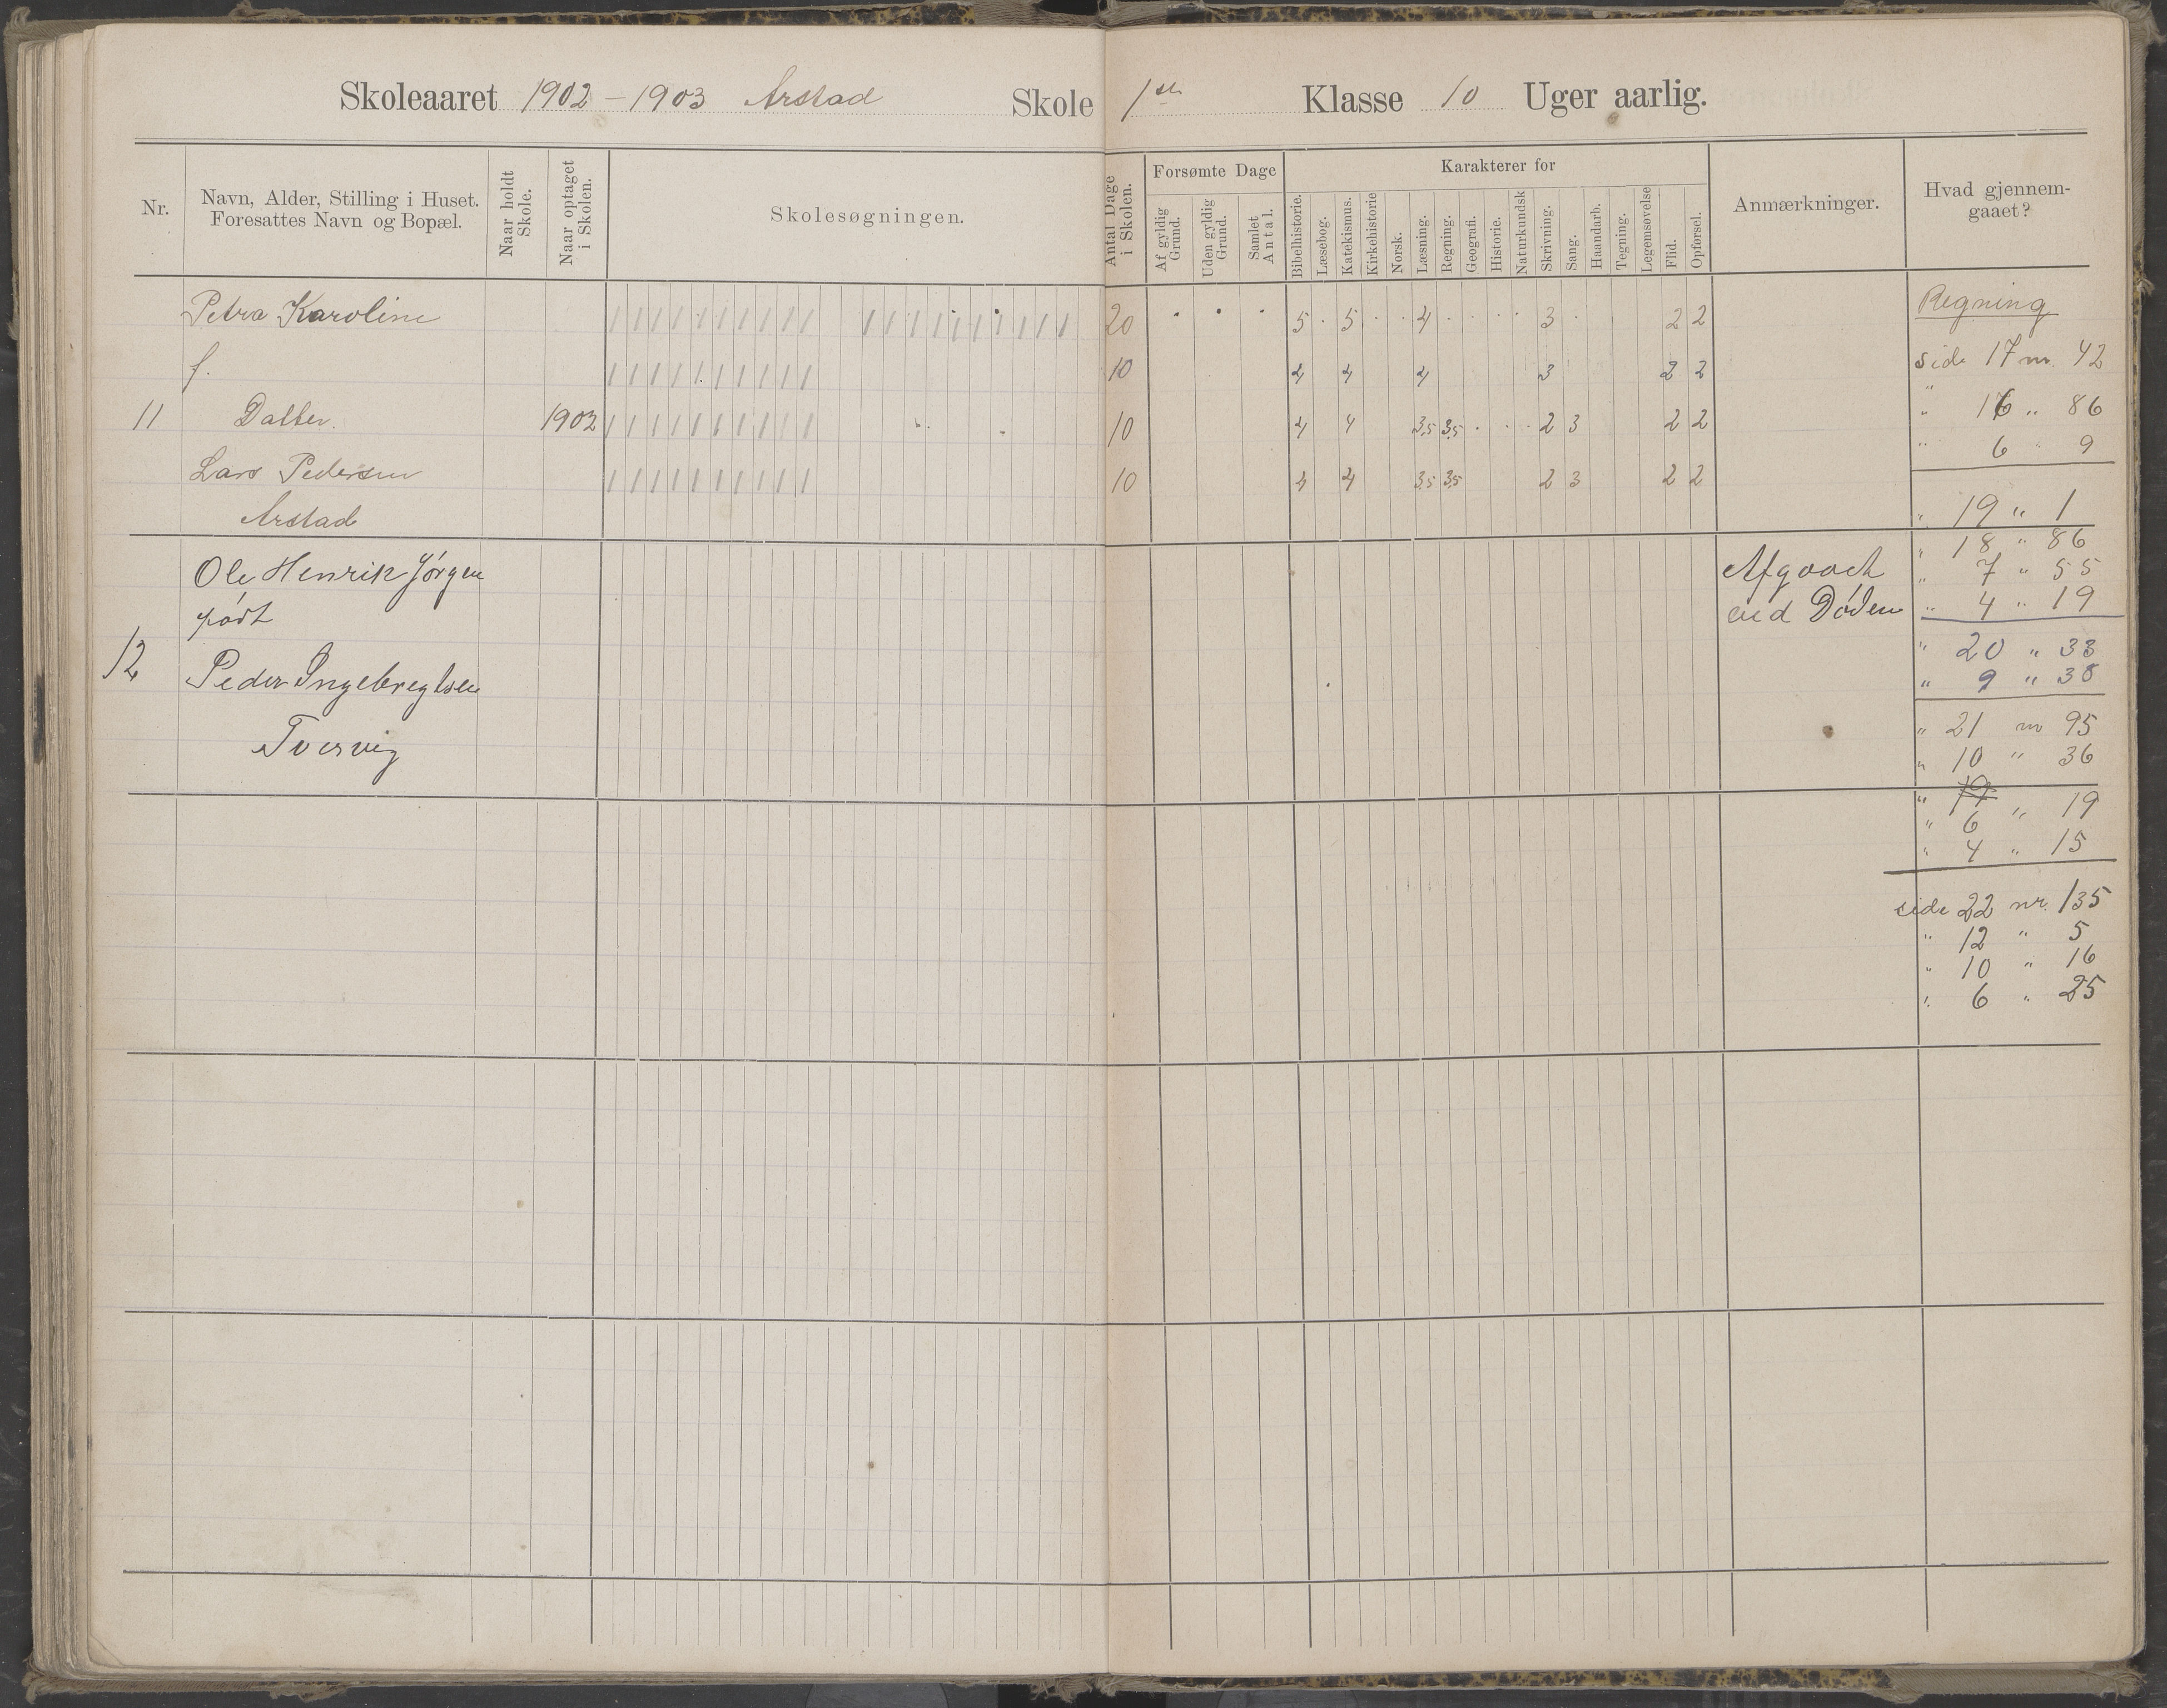 Skoleaaret 1902-1903 Arstad Skole 1ste Klasse 10 Uger aarlig.
Nr.
Navn, Alder, Stilling i Huset.
Foresattes Navn og Bopæl.
Naar holdt
Skole.
Naar optaget
i Skolen.
Skolesøgningen.
Antal Dage
i Skolen.
Forsømte Dage
Af gyldig
Grund.
Uden gyldig
Grund.
Samlet
Antal.
Karakterer for
Bibelhistorie.
Læsebog.
Katekismus.
Kirkehistorie
Norsk.
Læsning.
Regning.
Geografi.
Historie.
Naturkundsk
Skrivning.
Sang.
Haandarb.
Tegning.
Legemsøvelse
Flid.
Opførsel.
Anmærkninger.
Hvad gjennem-
gaaet?
Petra Karoline 20 5 5 4 3 2 2
f. 10 4 4 4 3 2 2
11 Datter. 1902 10 4 4 3,5 3,5 2 3 2 2
Lars Pedersen 10 4 4 3,5 3,5 2 3 2 2
Arstad
Ole Henrik Jörgen
født
12
Peder Ingebregtsen
Tversvig
Afgaaet
ved Döden
Regning
side 17 nr. 42
" 16 " 86
" 6 " 9
" 19 " 1
" 18 " 86
" 7 " 55
" 4 " 19
" 20 " 33
" 9 " 38
" 21 nr 95
" 10 " 36
" 19 " 19
" 6
" 4 " 15
side 22 nr. 135
" 12 " 5
" 10 " 16
" 6 " 25